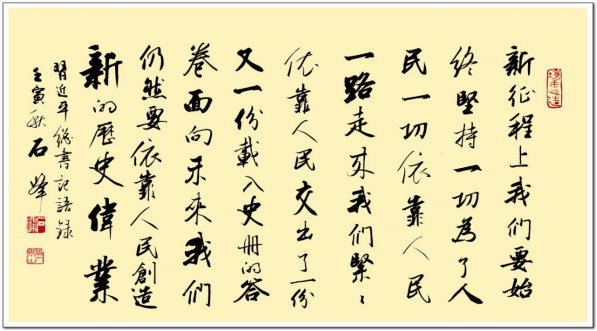 新征程上我们要始
终堅持一切為了人
民一切依靠人民
一路走来我们緊〻
依靠人民交出了一份
又一份載入史册的答
卷面向未来我们
仍然要依靠人民創造
新的歷史偉業
習近平總書記語録
壬寅秋石峰